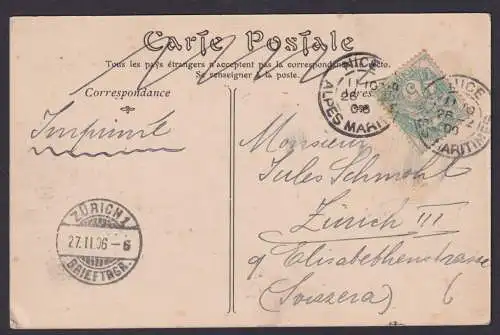 Carte Postale
Tous les pays étrangers n'acceptent pas la correspondance au recto
Se renseigner à la poste.
Correspondance
Imprimé
NICE
26
06
ALPES MARIT
NICE
26
MARITIMES
Monsieur
Jules Schmohl
Zürich III
9. Elisabethenstrasse
(Svizzera) 6
ZÜRICH 1
27.II.06-6
BRIEFTRGR.